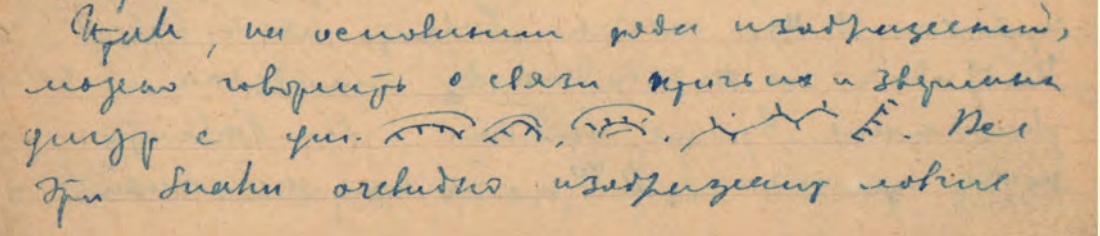 Итак, на основании ряда изображений,
можно говорить о связи птичьих и звериных
фигур с фиг. , , , . Все
эти знаки очевидно изображают ловчие